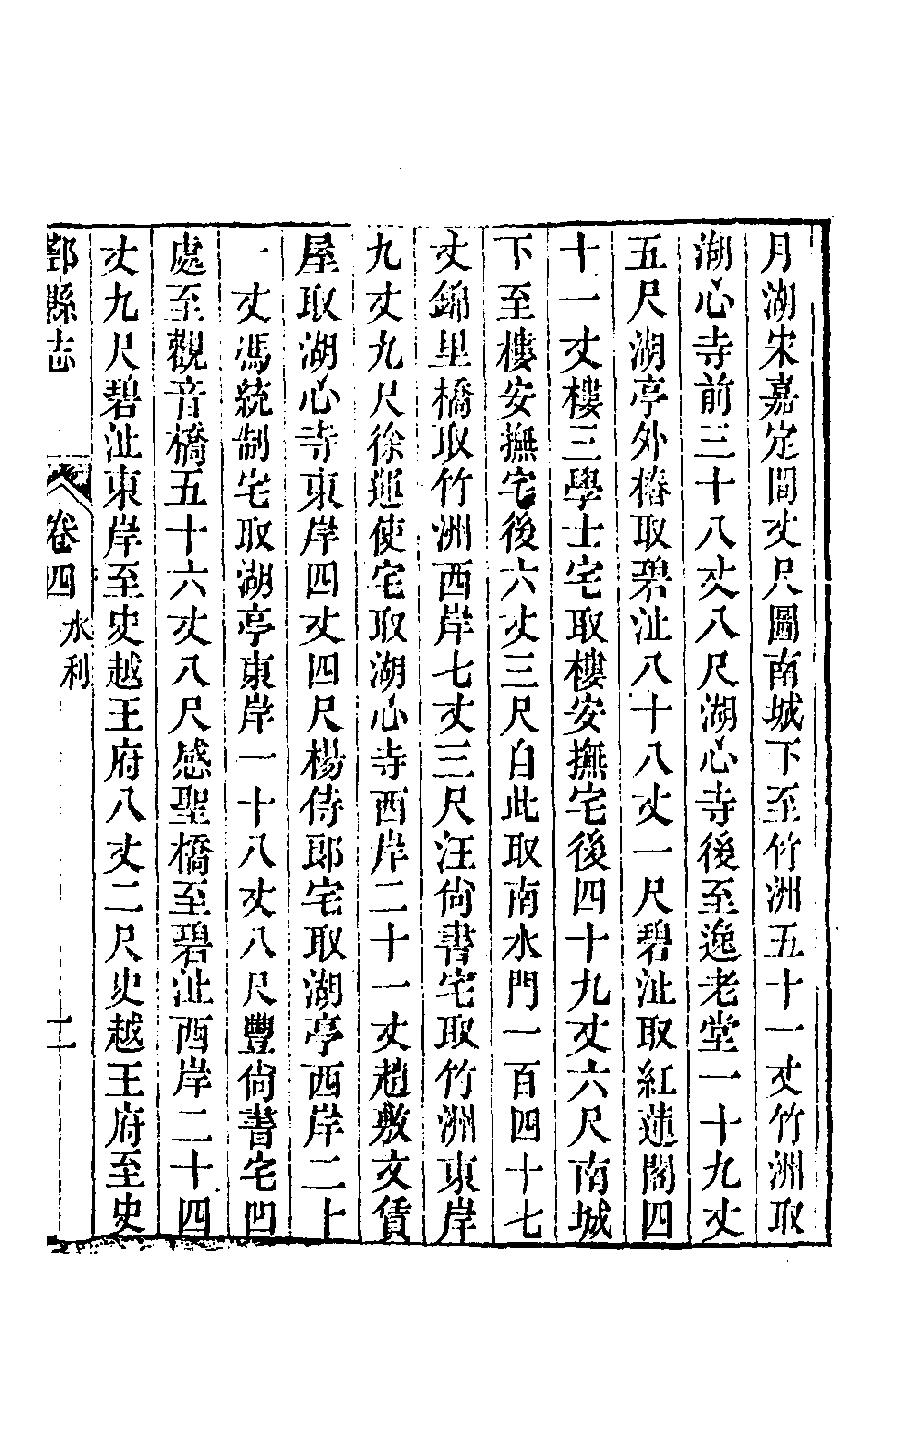 月湖宋嘉定間丈尺圖南城下至竹洲五十一丈竹洲取
湖心寺前三十八丈八尺湖心寺後至逸老堂一十九丈
五尺湖亭外椿取碧沚八十八丈一尺碧沚取紅蓮閣四
十一丈樓三學士宅取樓安撫宅後四十九丈六尺南城
下至樓安撫宅後六丈三尺自此取南水門一百四十七
丈錦里橋取竹洲西岸七丈三尺汪尙書宅取竹洲東岸
九丈九尺徐運使宅取湖心寺西岸二十一丈趙敷文賃
屋取湖心寺東岸四丈四尺楊侍郎宅取湖亭西岸二十
一丈馮統制宅取湖亭東岸一十八丈八尺豐尙書宅凹
處至觀音橋五十六丈八尺感聖橋至碧沚西岸二十四
丈九尺碧沚東岸至史越王府八丈二尺史越王府至史
鄞縣志 卷四 水利 二